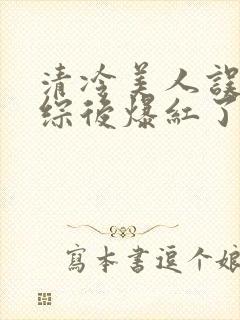 清冷美人誤
綜後爆紅了
寫本書逗个娘